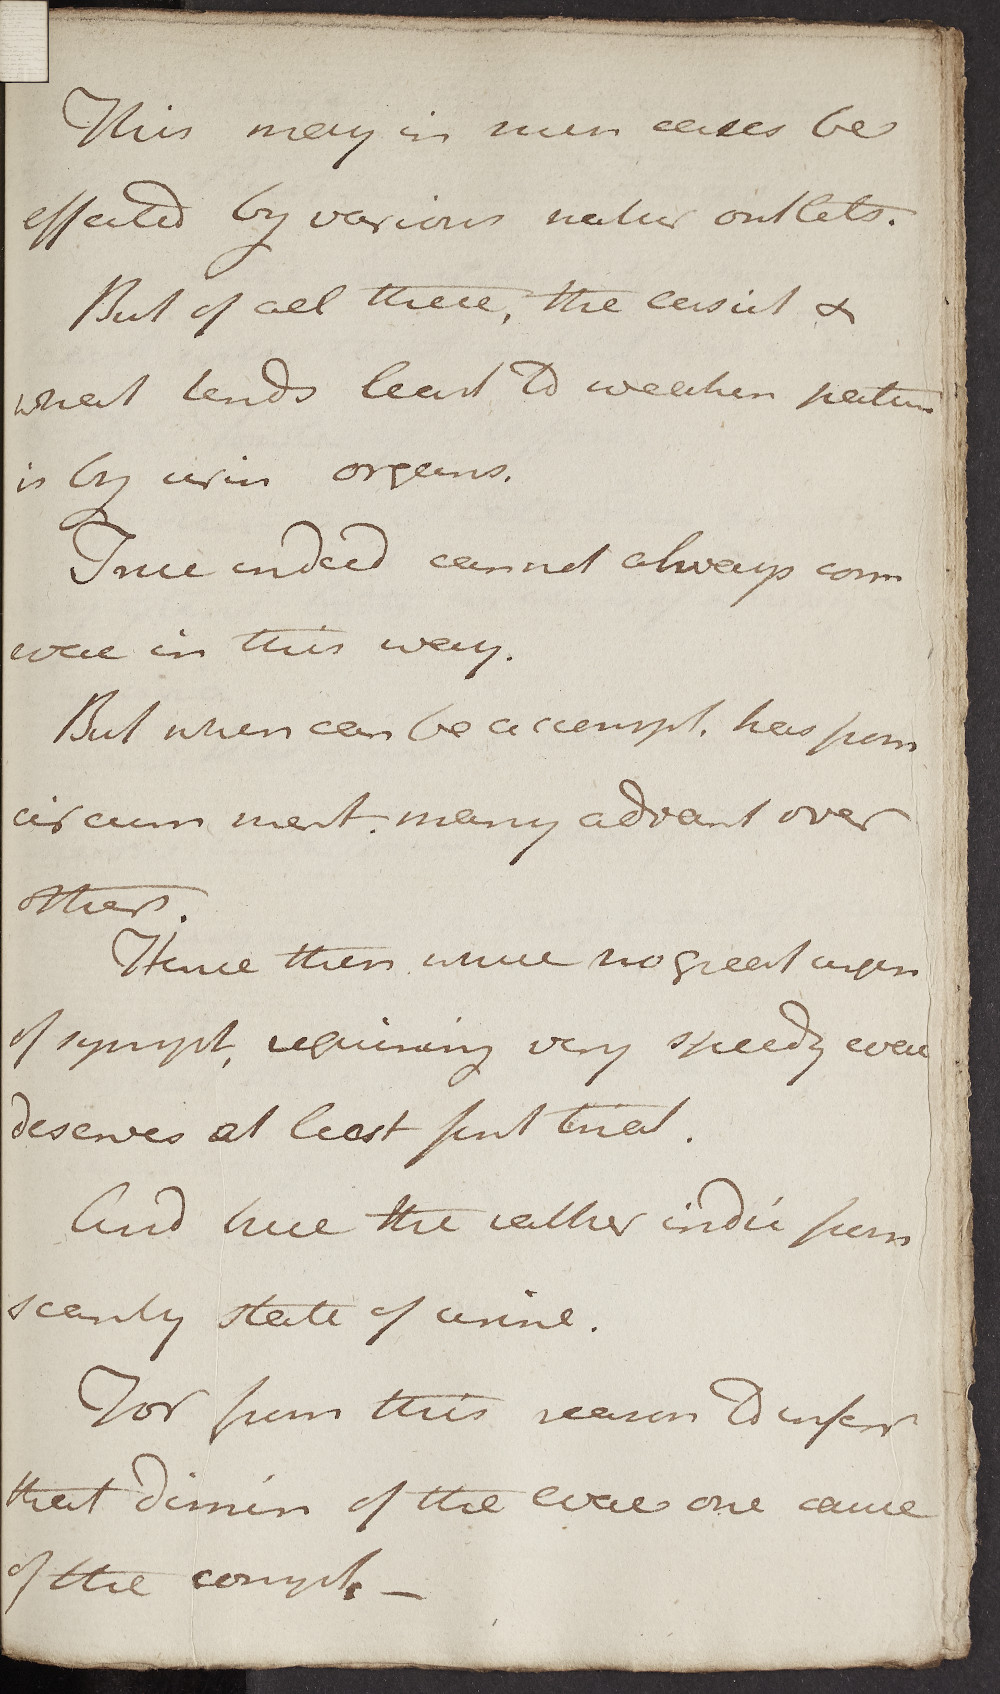 This may in num cases be
effected by various natur outlets.
But of all these, the easiest &
what tends least to weaken patien
is by urin organs.
True indeed cannot always com
evac in this way.
But when can be accompt. has from
circum ment. many advant over
others.
Hence then where no great urgen
of sympt, requiring very speedy evac
deserves at least first trial.
And here the rather indic from
scanty state of urine.
For from this reason to infer
that dimin of the evac one cause
of the compt. —